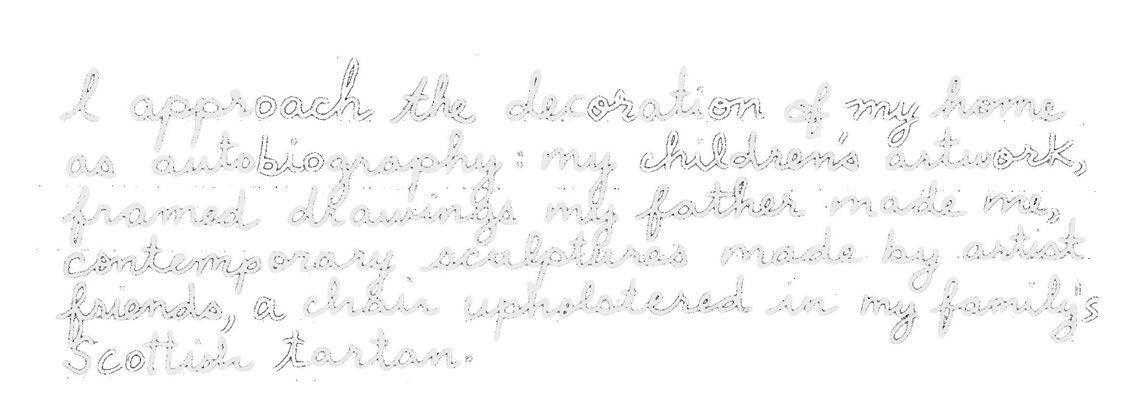 I approach the decoration of my home
as autobiography: my children's artwork,
framed drawings my father made me,
contemporary sculptures made by artist
friends, a chair upholstered in my family's
Scottish tartan.